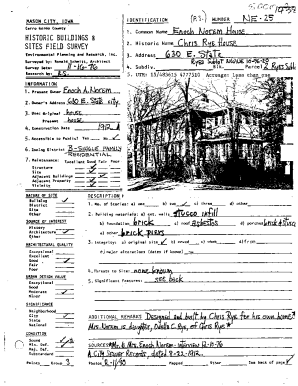 MASON CITY, IOWA
Cerro Gordo County
HISTORIC BUILDINGS &
SITES FIELD SURVEY
Environmental Planning and Research, Inc.
Surveyed by: Ronald Schmitt, Architect
IDENTIFICATION
NUMBER NE-25
1. Common Name Enoch Norem House
2. Historic Name Chris Rye House
3. Address 630 E. State
4. Subdiv.
Parcel
5. UTM: 15/485615 4777510 Acreage: Less than one
INFORMATION
1. Present Owner Enoch A. Norem
2. Owner's Address 630 E. State city
3. Use: Original house
Present house
4. Construction Date 1912 A
5. Accessible to Public? Yes No
6. Zoning District B-SINGLE FAMILY
RESIDENTIAL
7. Maintenance: Excellent Good Fair Poor
Structure
Site
Adjacent Buildings
Adjacent Property
Vicinity
NATURE OF SITE
Building
District
Site
Other
SOURCE OF INTEREST
History
Architecture
Other
ARCHITECTURAL QUALITY
Exceptional
Excellent
Good
Fair
Poor
URBAN DESIGN VALUE
Exceptional
Good
Moderate
Minor
SIGNIFICANCE
Neighborhood
City
State
National
CONDITION
Sound
Min. Def.
Maj. Def.
Substandard
DESCRIPTION
1. No. of Stories: one two three other
2. Building materials: a) ext. walls stucco infill
b) foundation brick c) roof asbestos d) porches brick & stucco
e) other brick piers
3. Integrity: a) original site b) moved when from
c) major alterations (dates if known)
4. Threats to Site: none known
5. Significant Features: set back
ADDITIONAL REMARKS Designed and built by Chris Rye for his own home.
SOURCES Mr. & Mrs. Enoch Norem-interview 12-10-76
A City Sewer Records, dated 8-22-1912.